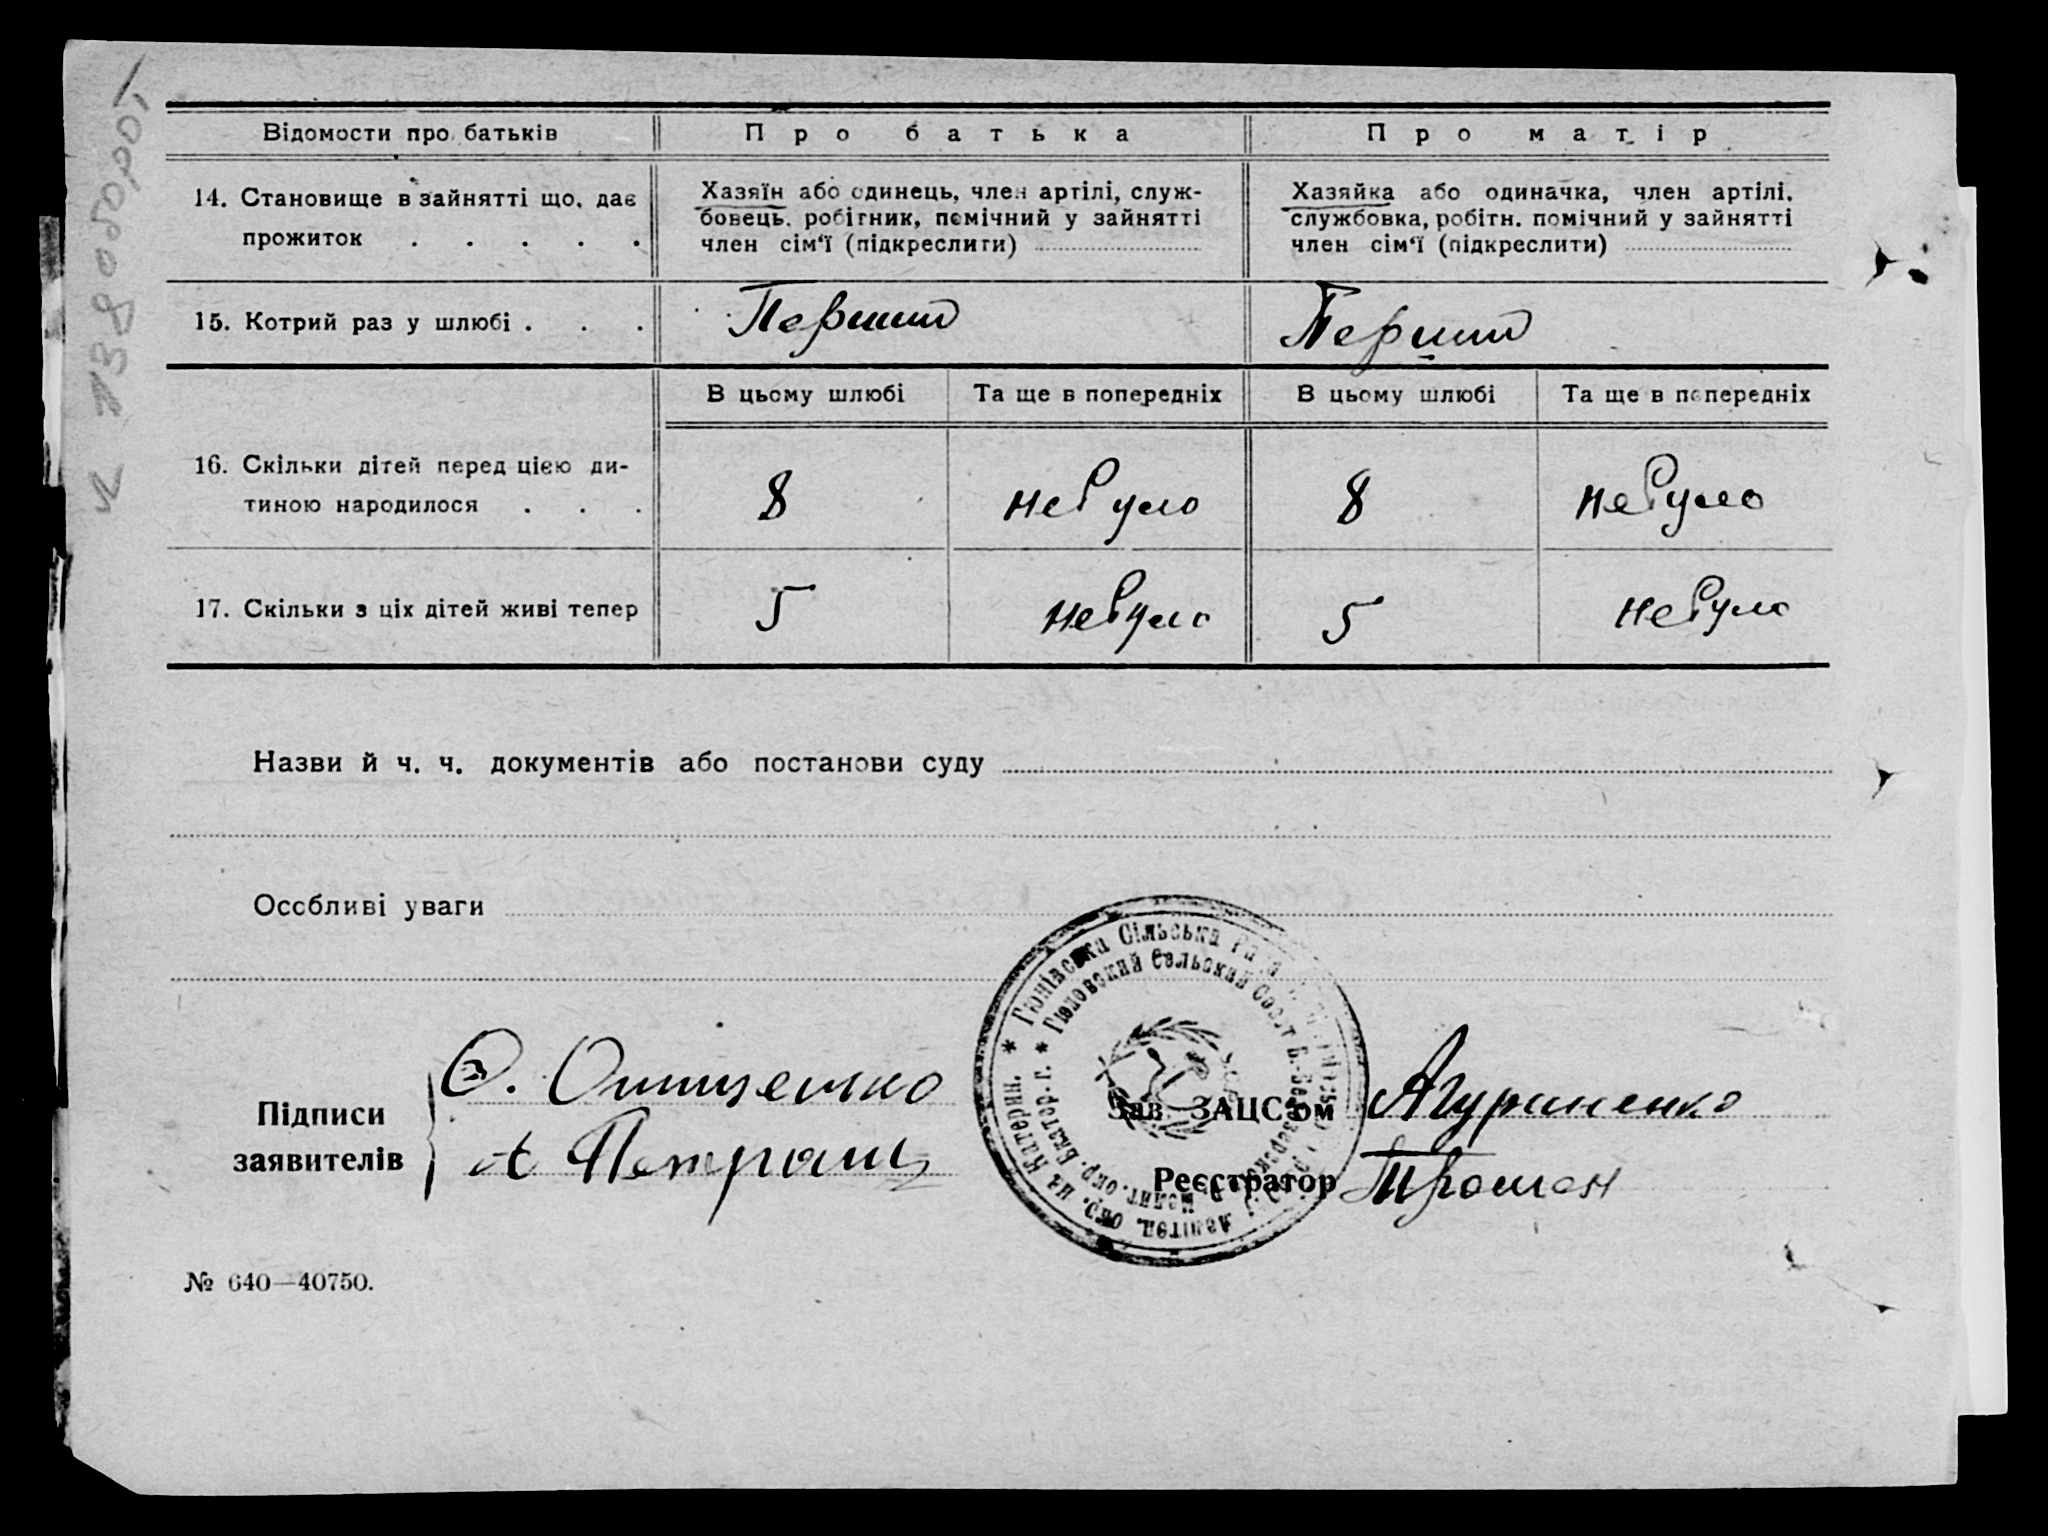 Відомости про батьків
Про батька
Про матір
14. Становище в зайнятті що, дає
прожиток . . . . .
Хазяїн або одинець, член артілі, служ-
бовець, робітник, помічний у зайнятті
член сім‘ї (підкреслити)
Хазяйка або одиначка, член артілі,
службовка, робітн. помічний у зайнятті
член сім‘ї (підкреслити)
15. Котрий раз у шлюбі . . .
Перший
Перший
В цьому шлюбі
Та ще в попередніх
В цьому шлюбі
Та ще в попередніх
16. Скільки дітей перед цією ди-
тиною народилося . . .
8
небуло
8
небуло
17. Скільки з ціх дітей живі тепер
5
небуло
5
небуло
Назви й ч. ч. документів або постанови суду
Особливі уваги
Гюнівська Сільська
Гюновский Сельский Совет
окр. на Катерин.
Мелит. окр. Екатер. г.
Підписи
заявителів
Зав. ЗАЦС‘ом
Реєстратор
№ 640—40750.